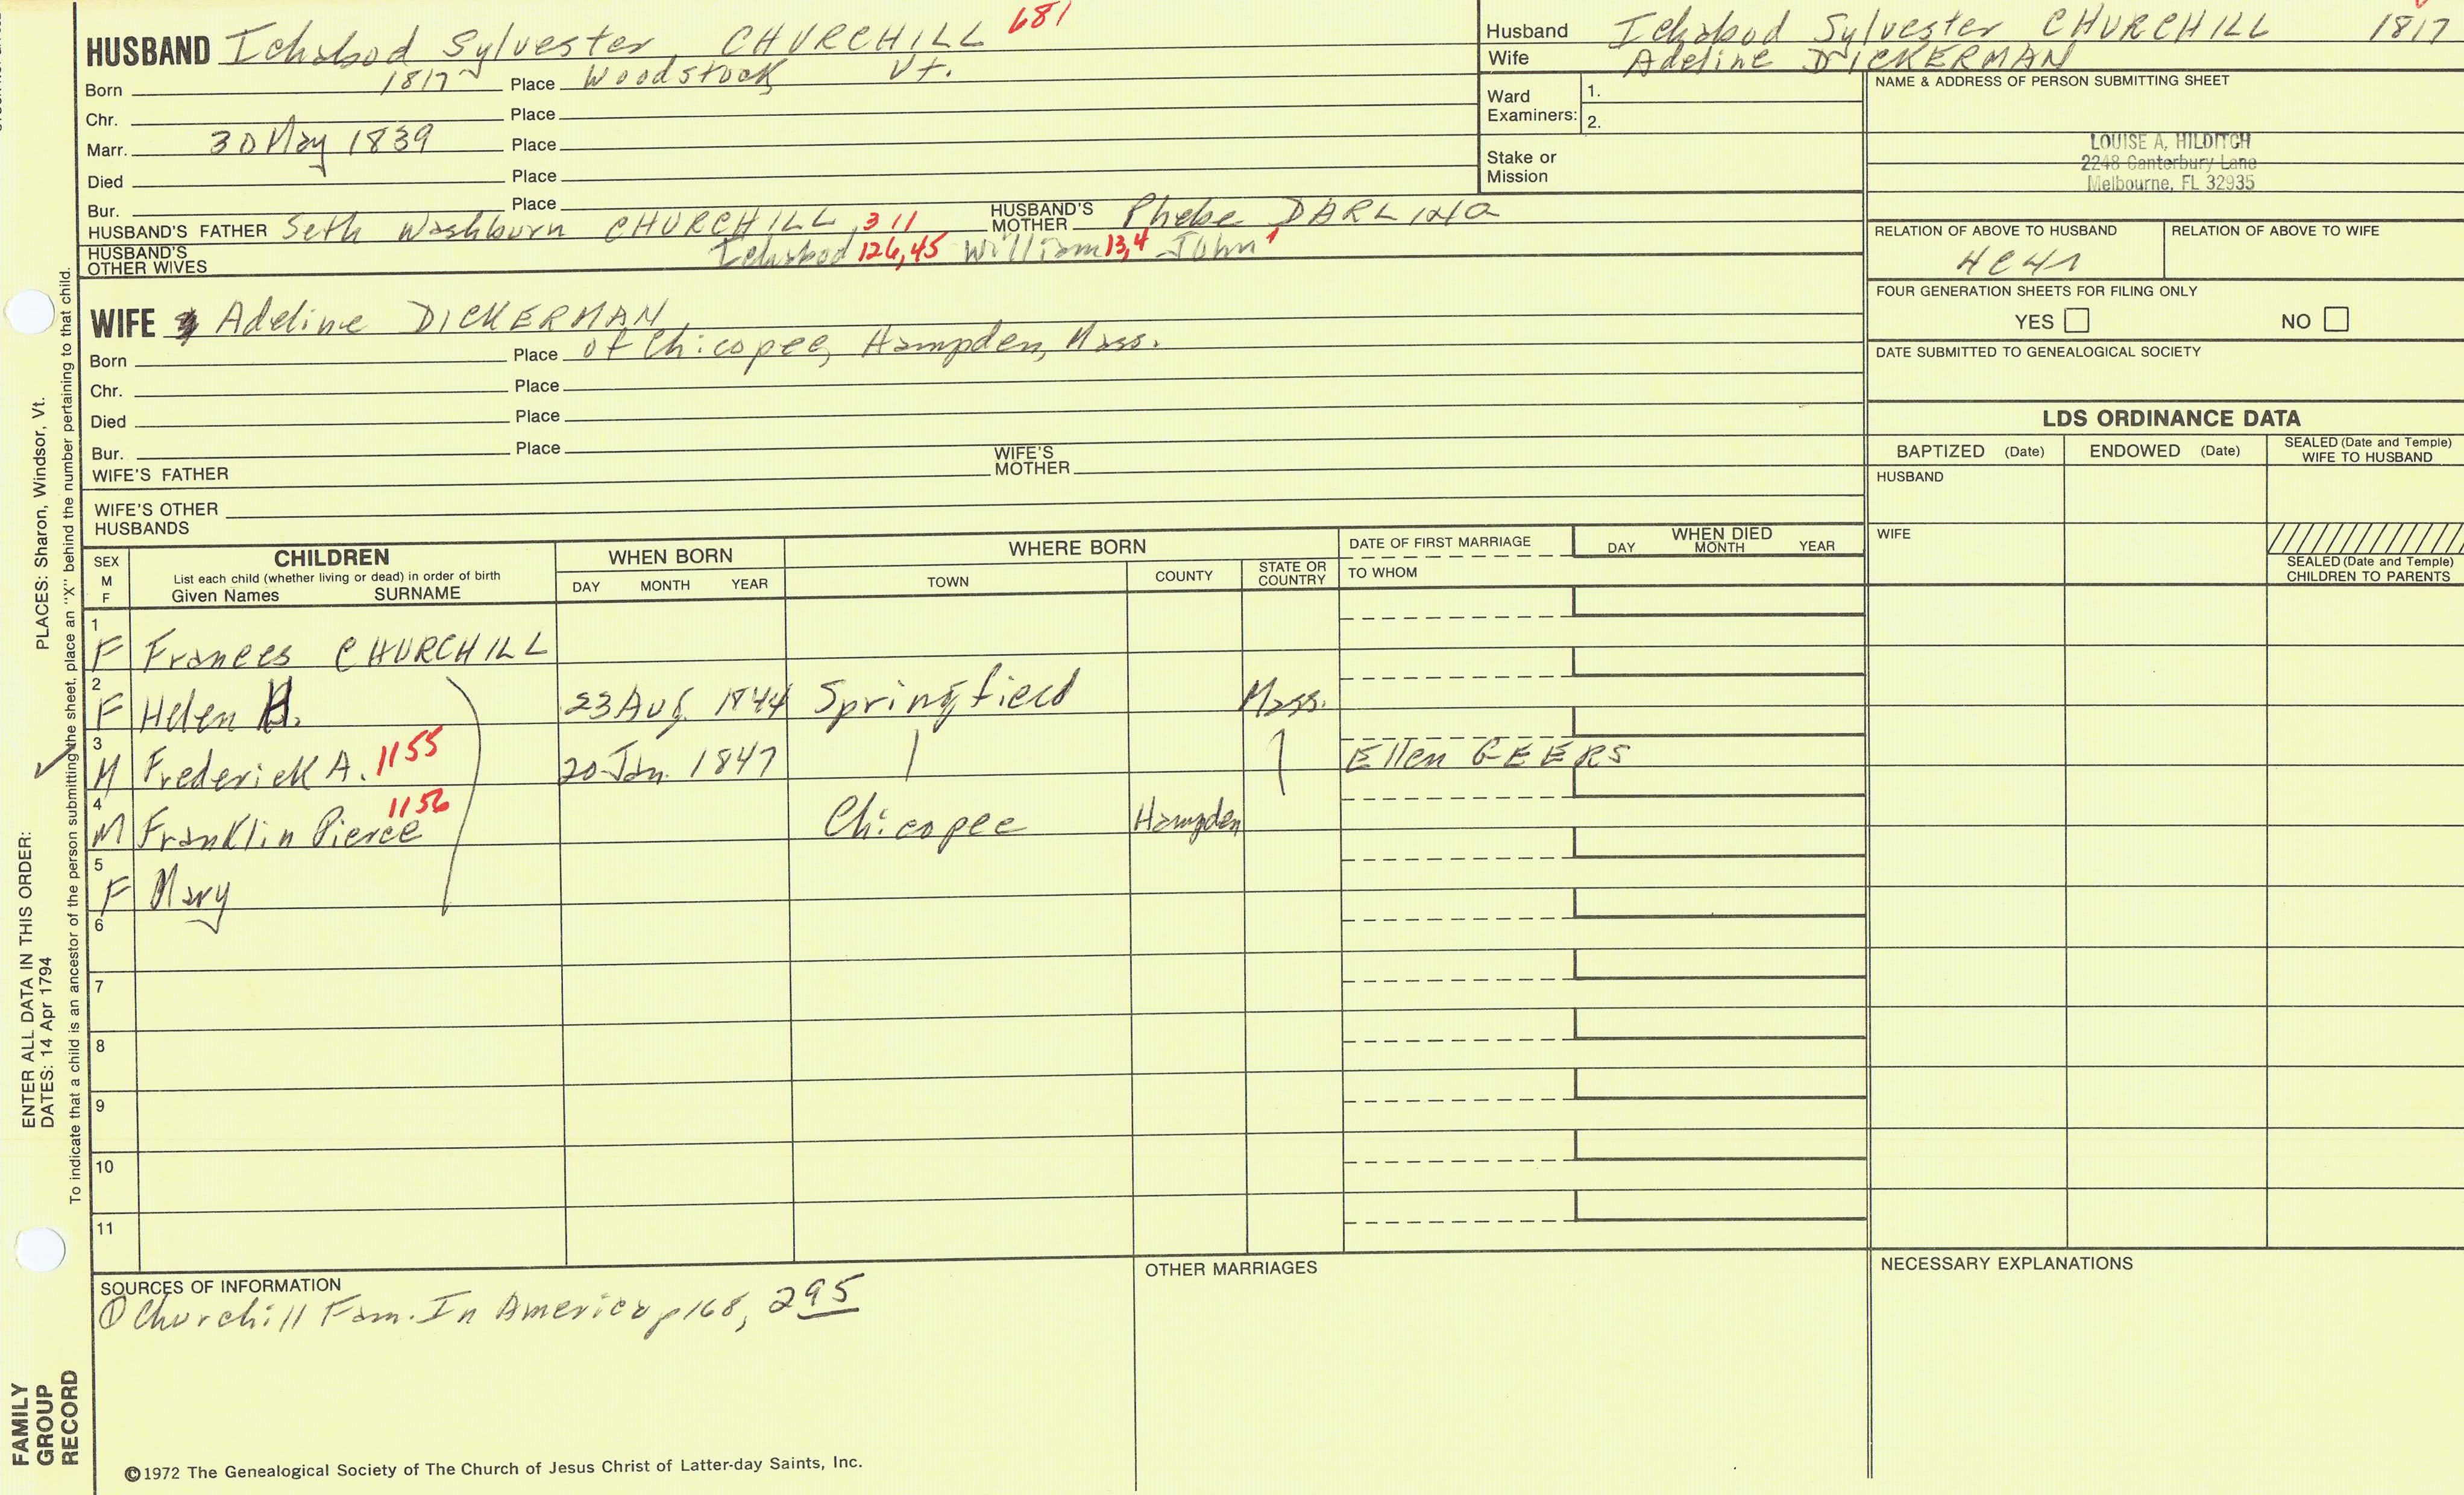 HUSBAND Ichabod Sylvester CHURCHILL 681
Born 1817 Place Woodstock Vt.
Chr. Place
Marr. 30 May 1839 Place
Died Place
Bur. Place
HUSBAND'S FATHER Seth Washburn CHURCHILL, 311 HUSBAND'S MOTHER Phebe DARLING
HUSBAND'S OTHER WIVES Ichabod 126, 45 William 13, 4 John 1
Husband Ichabod Sylvester CHURCHILL 1817
Wife Adeline DICKERMAN
Ward Examiners: 1.
2.
Stake or Mission
NAME & ADDRESS OF PERSON SUBMITTING SHEET
LOUISE A. HILDITCH
2248 Canterbury Lane
Melbourne, FL 32935
RELATION OF ABOVE TO HUSBAND RELATION OF ABOVE TO WIFE
4C41
FOUR GENERATION SHEETS FOR FILING ONLY
YES NO
DATE SUBMITTED TO GENEALOGICAL SOCIETY
WIFE Adeline DICKERMAN
Born Place of Chicopee, Hampden, Mass.
Chr. Place
Died Place
Bur. Place
WIFE'S FATHER WIFE'S MOTHER
WIFE'S OTHER HUSBANDS
LDS ORDINANCE DATA
BAPTIZED (Date) ENDOWED (Date) SEALED (Date and Temple) WIFE TO HUSBAND
HUSBAND
WIFE
SEALED (Date and Temple) CHILDREN TO PARENTS
SEX M F CHILDREN
List each child (whether living or dead) in order of birth
Given Names SURNAME
WHEN BORN
DAY MONTH YEAR
WHERE BORN
TOWN COUNTY STATE OR COUNTRY
DATE OF FIRST MARRIAGE
TO WHOM
WHEN DIED
DAY MONTH YEAR
1 F Frances CHURCHILL
2 F Helen B. 23 Aug. 1844 Springfield Mass.
3 M Frederick A. 1155 20 Jan. 1847 Ellen GEERS
4 M Franklin Pierce 1156 Chicopee Hampden
5 F Mary
6
7
8
9
10
11
SOURCES OF INFORMATION
① Churchill Fam. In America p168, 295
OTHER MARRIAGES
NECESSARY EXPLANATIONS
©1972 The Genealogical Society of The Church of Jesus Christ of Latter-day Saints, Inc.
FAMILY GROUP RECORD
ENTER ALL DATA IN THIS ORDER:
DATES: 14 Apr 1794 PLACES: Sharon, Windsor, Vt.
To indicate that a child is an ancestor of the person submitting the sheet, place an "X" behind the number pertaining to that child.